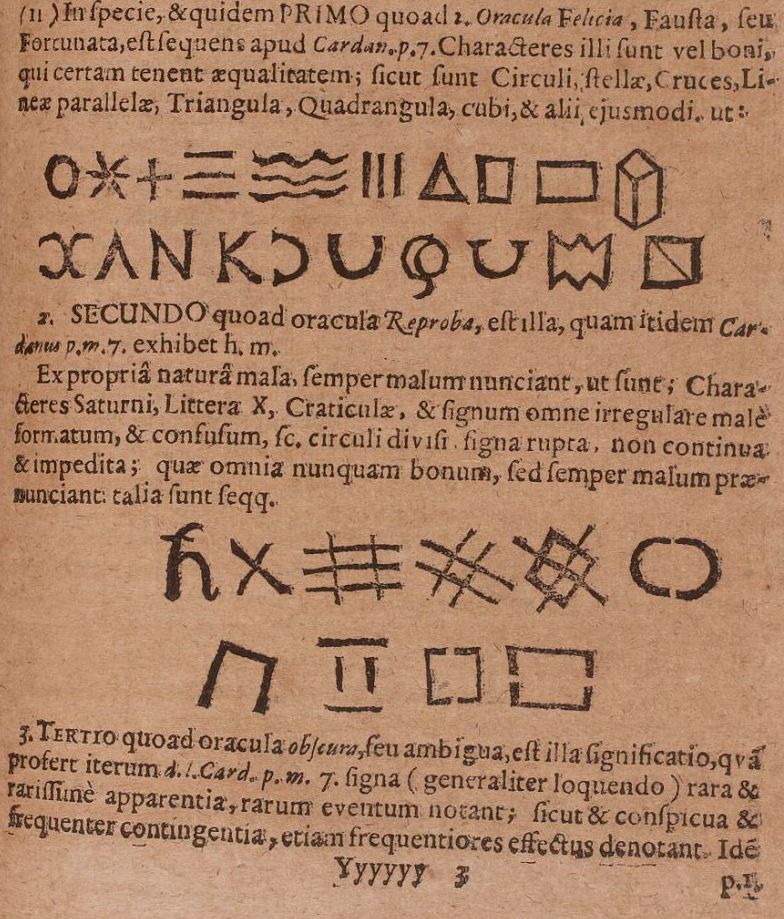 (11) In ſpecie, & quidem PRIMO quoad 1. Oracula Felicia, Fauſta, ſeu
Fortunata, eſt ſequens apud Cardan. p. 7. Characteres illi ſunt vel boni,
qui certam tenent æqualitatem; ſicut ſunt Circuli, ſtellæ, Cruces, Li-
neæ parallelæ, Triangula, Quadrangula, cubi, & alii ejusmodi. ut:
2. SECUNDO quoad oracula Reproba, eſt illa, quam itidem Car-
danus p. m. 7. exhibet h. m.
Ex propriâ naturâ mala, ſemper malum nunciant, ut ſunt; Chara-
cteres Saturni, Littera X, Craticulæ, & ſignum omne irregulare malè
formatum, & confuſum, ſc. circuli diviſi. ſigna rupta, non continua
& impedita; quæ omnia nunquam bonum, ſed ſemper malum præ-
nunciant: talia ſunt ſeqq.
3. TERTIO quoad oracula obſcura, ſeu ambigua, eſt illa ſignificatio, qvã
profert iterum d. l. Card. p. m. 7. ſigna (generaliter loquendo) rara &
rariſſimè apparentia, rarum eventum notant; ſicut & conſpicua &
frequenter contingentia, etiam frequentiores effectus denotant. Idẽ
Yyyyyy 3